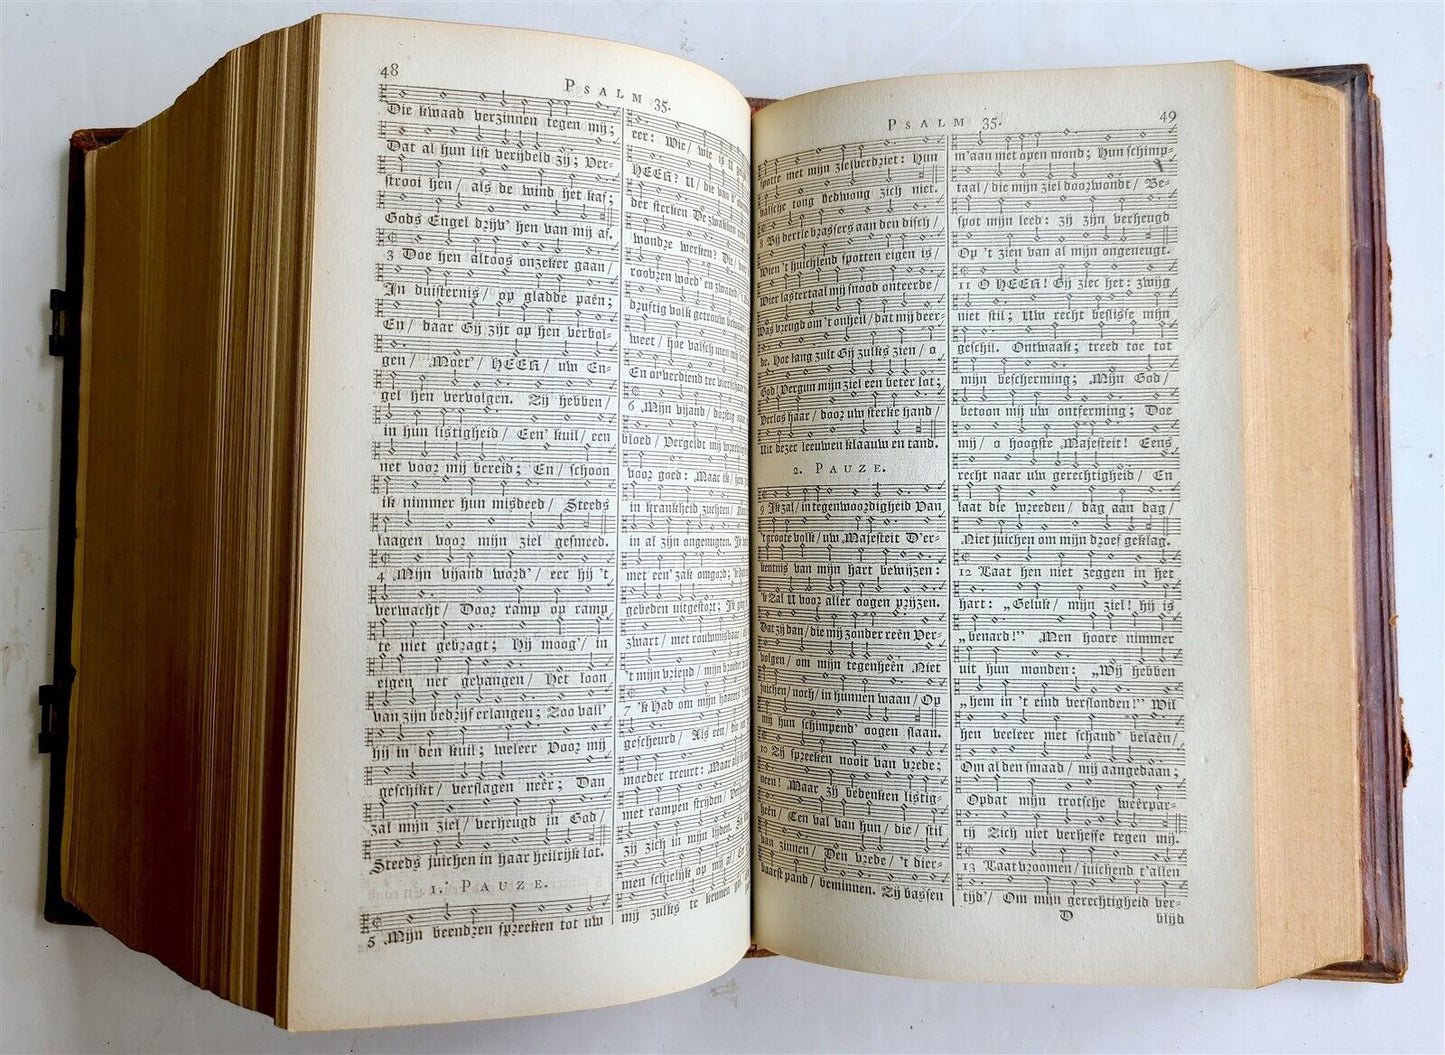 48
PSALM 35.
Die kwaad verzinnen tegen mij;
Dat al hun list verijdeld zij; Ver-
strooi hen/ als de wind het kaf;
Gods Engel drijv' hen van mij af.
3 Doe hen altoos onzeker gaan/
In duisternis/ op gladde paên;
En/ daar Gij zijt op hen verbol-
gen/ Moet'/ HEER/ uw En-
gel hen vervolgen. Zij hebben/
in hun listigheid/ Een' kuil/ een
net voor mij bereid; En/ schoon
ik nimmer hun misdeed/ Steeds
laagen voor mijn ziel gesmeed.
4 Mijn vijand word'/ eer hij 't
verwacht/ Door ramp op ramp
te niet gebragt; Hij moog'/ in
eigen net gevangen/ Het loon
van zijn bedrijf erlangen; Zoo vall'
hij in den kuil; weleer Voor mij
geschikt/ verslagen neêr; Dan
zal mijn ziel/ verheugd in God/
Steeds juichen in haar heilrijk lot.
1. PAUZE.
5 Mijn beendren spreeken tot uw
eer: Wie/ wie is U
HEER? U/ die van
der sterken De zwakken
wondre werken? Die/
roovzen woed' en
druftig volk getrouw
weet/ hoe valsch men mij
En onverdiend ter vierschaar
6 Mijn vijand/ dorstig naar
bloed/ Vergeldt mij
voor goed: Maar ik/ hen
in krankheid zuchten/
in al zijn ongenugten.
met een' zak omgord;
gebeden uitgestort; Ik ging
zwart/ met rouwmisbaar/
't mijn vriend/ mijn broeder
7 'k Had om mijn
gescheurd/ Als een/ die
moeder treurt: Maar als
met rampen strijden/
zij zich in mijn lijden.
men schielijk op mij
mij zulks te kennen
PSALM 35.
49
spotte met mijn zielverdriet: Hun
valsche tong bedwong zich niet.
8 Bij dertle brassers aan den disch/
Wien 't huichlend spotten eigen is/
Wier lastertaal mij snood onteerde/
Was vreugd om 't onheil/ dat mij deer-
de. Hoe lang zult Gij zulks zien/ o
God! Vergun mijn ziel een beter lot;
Verlos haar/ door uw sterke hand/
Uit dezer leeuwen klaauw en tand.
2. PAUZE.
9 Ik zal/ in tegenwoordigheid Van
't groote volk/ uw Majesteit D'er-
kentnis van mijn hart bewijzen:
'k Zal U voor aller oogen prijzen.
Dat zij dan/ die mij zonder reên Ver-
volgen/ om mijn tegenheên Niet
juichen/ noch/ in hunnen waan/ Op
mij hun schimpend' oogen slaan.
10 Zij spreeken nooit van vrede;
neen! Maar zij bedenken listig-
heên/ Een val van hun/ die/ stil
van zinnen/ Den vrede/ 't dier-
baarst pand/ beminnen. Zij bassen
m'aan met open mond; Hun schimp-
taal/ die mijn ziel doorwondt/ Be-
spot mijn leed: zij zijn verheugd
Op 't zien van al mijn ongeneugt.
11 O HEER! Gij ziet het: zwijg
niet stil; Uw recht beslisse mijn
geschil. Ontwaak; treed toe tot
mijn bescherming; Mijn God/
betoon mij uw ontferming; Doe
mij/ o hoogste Majesteit! Eens
recht naar uw gerechtigheid/ En
laat die wreeden/ dag aan dag/
Niet juichen om mijn droef geklag.
12 Laat hen niet zeggen in het
hart: „Geluk/ mijn ziel! hij is
„benard!” Men hoore nimmer
uit hun monden: „Wij hebben
„hem in 't eind verslonden!” Wil
hen veeleer met schand' belaên/
Om al den smaad/ mij aangedaan;
Opdat mijn trotsche weêrpar-
tij Zich niet verheffe tegen mij.
13 Laat vroomen/ juichend t'allen
tijd'/ Om mijn gerechtigheid ver-
D
blijd